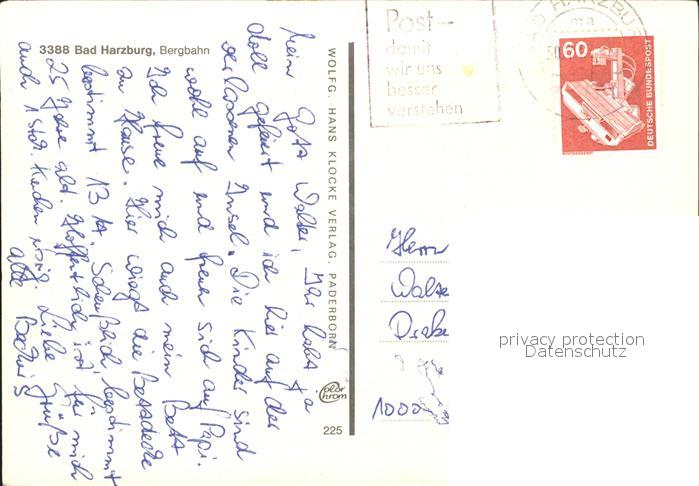 3388 Bad Harzburg, Bergbahn
WOLFG. HANS KLOCKE VERLAG. PADERBORN
Color
Chrom
225
Mein Gott Walter, Ihr habt ja
doll gefeiert und ich hier auf der
Insel. Die Kinder sind
wohl auf und freuen sich auf Papi.
Ich freue mich auch mein Bett
zu Hause. Hier wiegt die Bettdecke
bestimmt 13 kg. bestimmt
25 Jahre alt. Hoffentlich ist für mich
auch 1 Stck. Kuchen übrig. Liebe Grüße
alle
Post-
damit
wir uns
besser
verstehen
BAD HARZBURG
ma
60
DEUTSCHE BUNDESPOST
Herrn
Walter
1000
privacy protection
Datenschutz